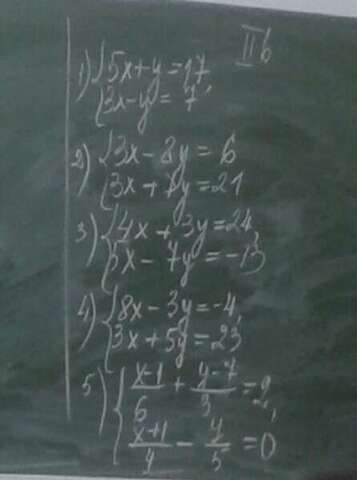 II b
1) { 5x+y=17,
3x-y=7
2) { 3x-8y=6
3x+7y=21
3) { 4x+3y=24,
5x-7y=-13
4) { 8x-3y=-4,
3x+5y=23
5) { x-1/6 + y-7/3 =2,
x+1/4 - y/5 =0